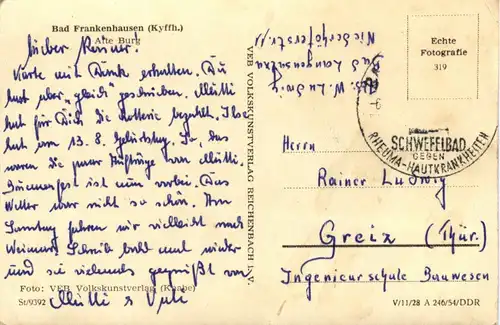 Bad Frankenhausen (Kyffh.)
Alte Burg
Lieber Rainer!
Karte mit Dank erhalten. Du
hast aber "gleich" geschrieben. Mutti
hat für Dich die Lotterie bezahlt. Ilse
hat am 13. 8. Geburtstag. So, das
waren die paar Aufträge von Mutti.
Sommerfest ist nun vorbei. Das
Wetter war nicht so schön. Am
Samstag fahren wir vielleicht nach
Weimar. Schreib bald mal wieder
und sei vielmals gegrüßt von
Mutti & Vati
Foto: VEB Volkskunstverlag (Knabe)
St/9392
VEB VOLKSKUNSTVERLAG REICHENBACH I. V.
W. Ludwig
Bad Langensalza
Niederhöferstr.
Echte
Fotografie
319
SCHWEFELBAD
GEGEN
RHEUMA-HAUTKRANKHEITEN
Herrn
Rainer Ludwig
Greiz (Thür.)
Ingenieurschule Bauwesen
V/11/28 A 246/54/DDR